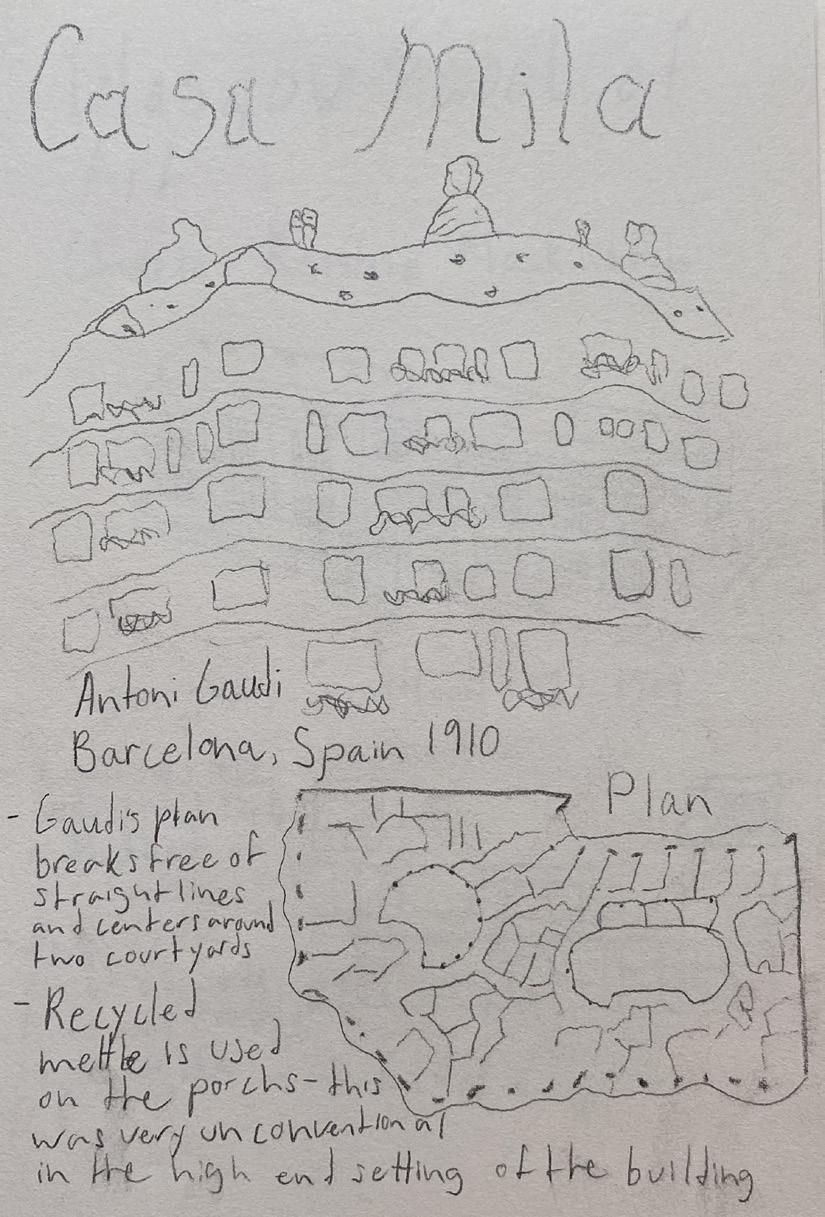 Casa Mila
Antoni Gaudi
Barcelona, Spain 1910
Plan
- Gaudi's plan
breaks free of
straight lines
and centers around
two courtyards
- Recycled
mettle is used
on the porchs - this
was very unconventional
in the high end setting of the building